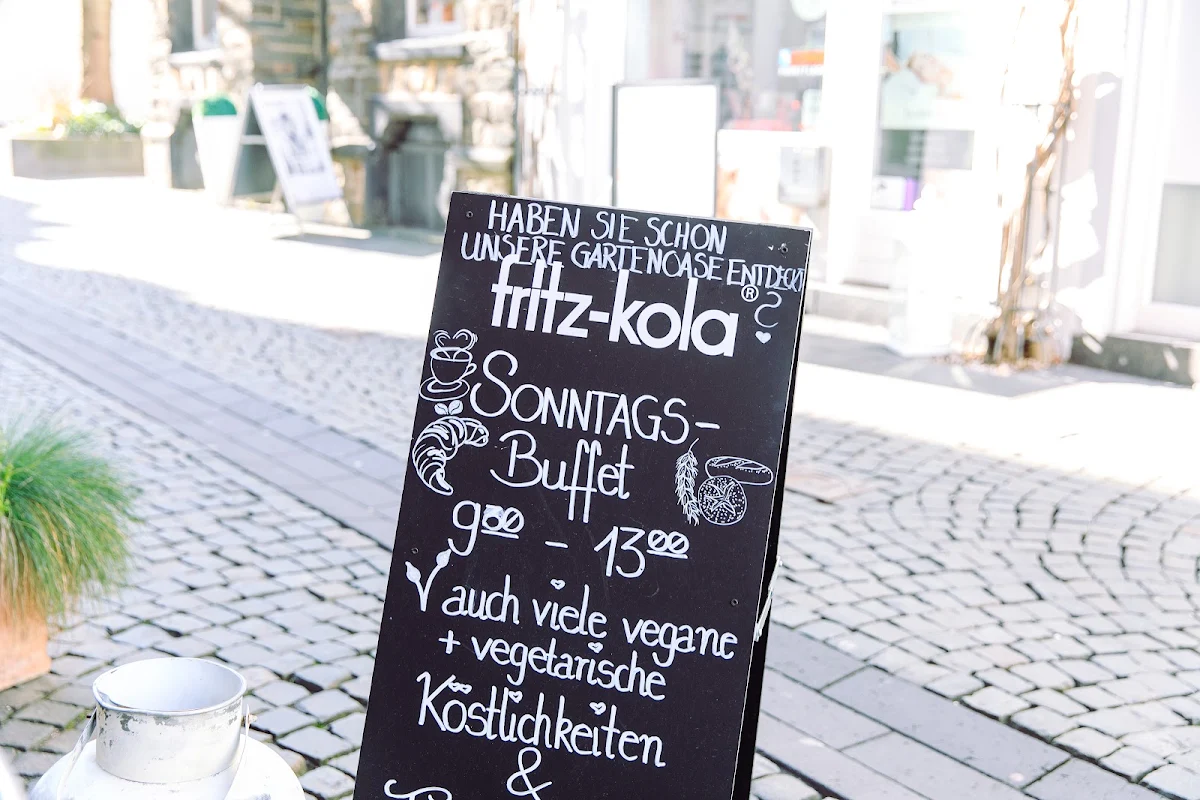 HABEN SIE SCHON
UNSERE GARTENOASE ENTDECKT
fritz-kola® ?
SONNTAGS-
Buffet
9³⁰ - 13⁰⁰
V auch viele vegane
+ vegetarische
Köstlichkeiten
&